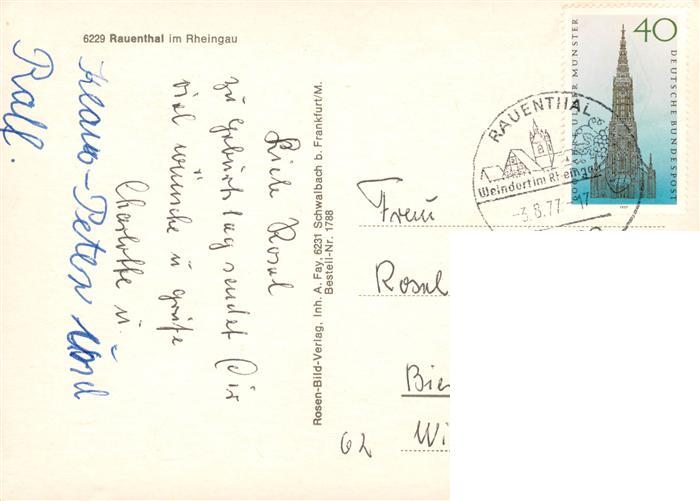 6229 Rauenthal im Rheingau
Liebe Rosel
zu Geburtstag sendet Dir
viel wünsche u grüße
Charlotte u.
Klaus-Peter und
Ralf.
Rosen-Bild-Verlag, Inh. A. Fay, 6231 Schwalbach b. Frankfurt/M.
Bestell-Nr. 1788
40
ULMER MÜNSTER
DEUTSCHE BUNDESPOST
1977
RAUENTHAL
Weindorf im Rheingau
-3.8.77-17
Frau
Rosel
Bie
62 Wi